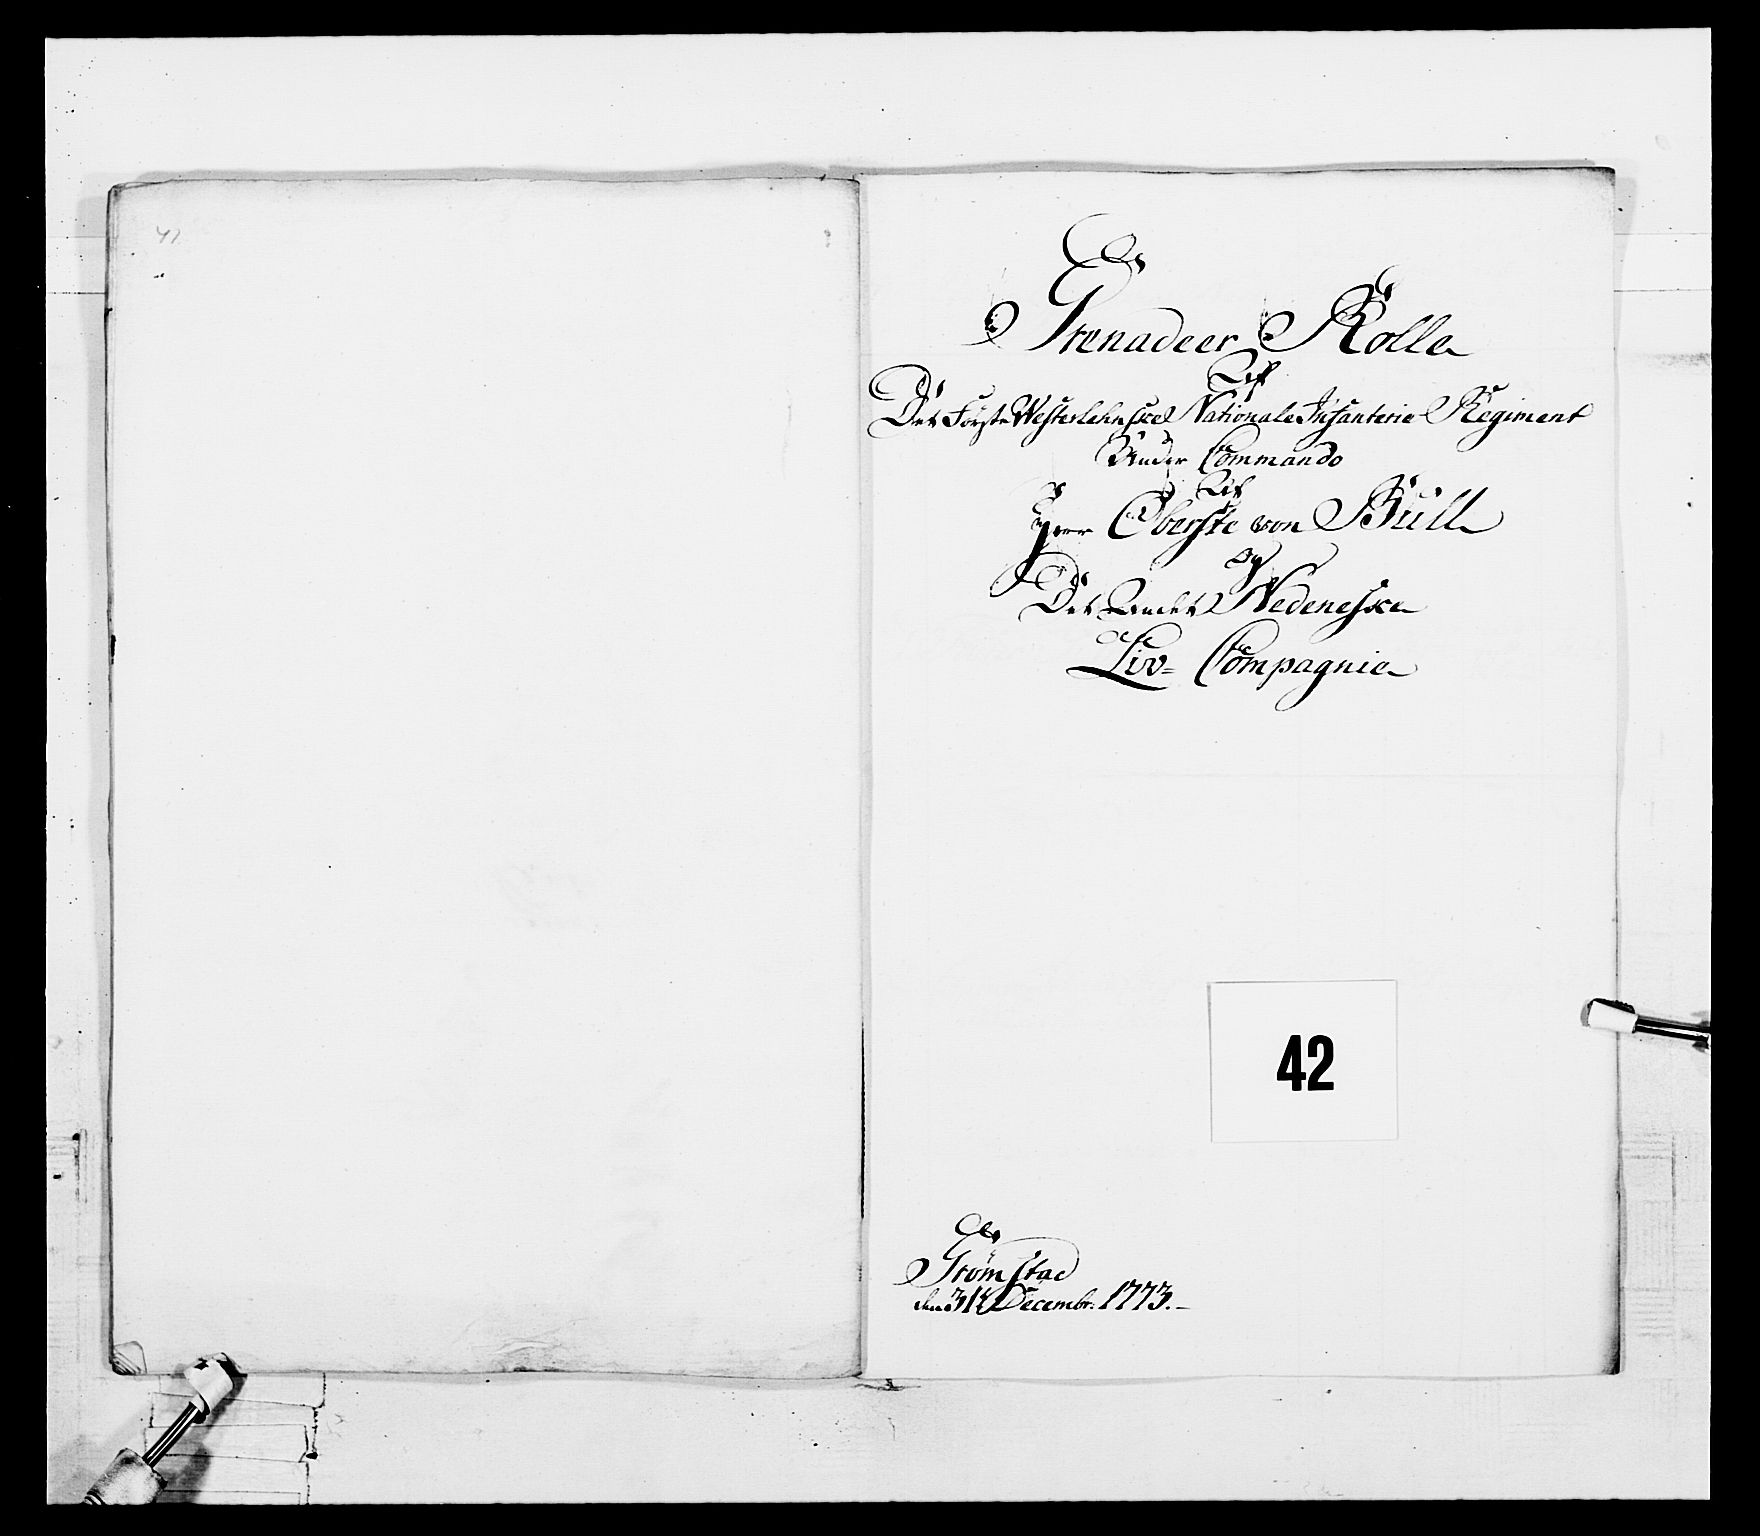 Grenadeer Rolle
Af
Det Første Westerlehnske Nationale Infanterie Regiment
Under Commando
Af
Herr Oberste von Büll
og
Det Andet Nedeneske
Liv= Compagnie
42
Trømstad
den 31te Decembr: 1773.